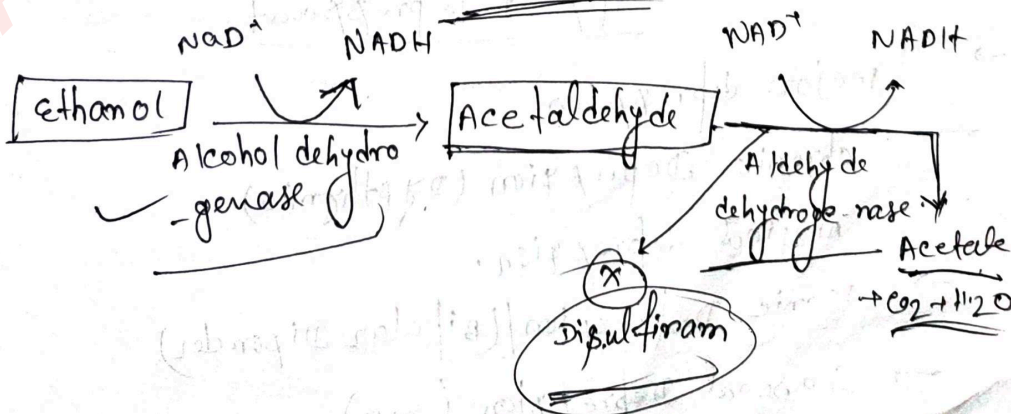 NaD+ NADH NAD+ NADH
Ethanol Acetaldehyde
Alcohol dehydro
-genase
Aldehyde
dehydroge-nase
Acetate
→ CO2 + H2O
X
Disulfiram